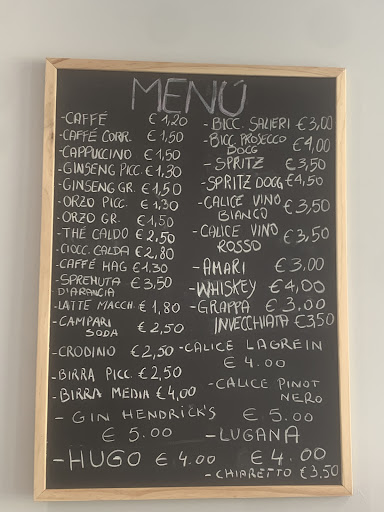 MENÚ
-CAFFÉ € 1,20
-CAFFÉ CORR. € 1,50
-CAPPUCCINO € 1,50
-GINSENG PICC. € 1,30
-GINSENG GR. € 1,50
-ORZO PICC. € 1,30
-ORZO GR. € 1,50
-THÉ CALDO € 2,50
-CIOCC. CALDA € 2,80
-CAFFÉ HAG € 1,30
-SPREMUTA € 3,50
D'ARANCIA
-LATTE MACCH. € 1,80
-CAMPARI
SODA € 2,50
-CRODINO € 2,50
-BIRRA PICC. € 2,50
-BIRRA MEDIA € 4,00
- GIN HENDRICK'S
€ 5.00
-HUGO € 4.00
-BICC. SALIERI € 3,00
-BICC. PROSECCO
DOCG € 4,00
-SPRITZ € 3,50
-SPRITZ DOCG € 4,50
-CALICE VINO
BIANCO € 3,50
-CALICE VINO
ROSSO € 3,50
-AMARI € 3,00
-WHISKEY € 4,00
-GRAPPA € 3,00
INVECCHIATA € 3,50
-CALICE LAGREIN
€ 4.00
-CALICE PINOT
NERO
€ 5.00
-LUGANA
€ 4.00
-CHIARETTO € 3,50